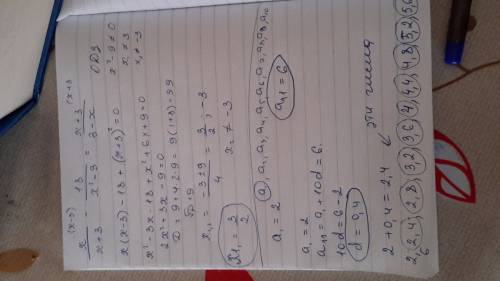 (x-3) (x+3
x/(x+3) - 18/(x²-9) = (x+3)/(3-x) ОДЗ
x²-9≠0
x≠3
x≠-3
x(x-3) - 18 + (x+3)² = 0
x² - 3x - 18 + x² + 6x + 9 = 0
2x² + 3x - 9 = 0
D = 9 + 4·2·9 = 9(1+8) = 99
√D = 9
x₁,₂ = (-3±9)/4 = 3/2 ; -3
x₁ = 3/2 x₂ ≠ -3
②, a₂, a₃, a₄, a₅, a₆, a₇, a₈, a₉, a₁₀
a₁ = 2 a₁₁ = 6
a₁ = 2
a₁₁ = a₁ + 10d = 6.
10d = 6-2
d = 0,4
2 + 0,4 = 2,4 эти числа
2, 2,4; 2,8; 3,2; 3,6; 4; 4,4; 4,8; 5,2; 5,6
6